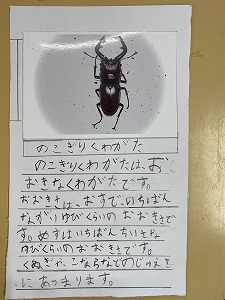 のこぎりくわがた
のこぎりくわがたは、お
おきなくわがたです。
おおきさは、おすで、いちばん
ながいゆびくらいのおおきさで
す。めすはいちばんちいさな
ゆびくらいのおおきさです。
くぬぎや、こならなどのじゅえき
にあつまります。